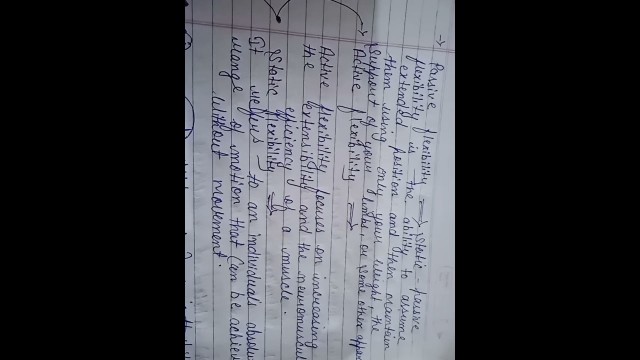 → Passive flexibility ⇒ Static passive
flexibility is the ability to assume
extended position and then maintain
them using only your weight, the
support of your limbs, or some other
→ Active flexibility ⇒
Active flexibility focuses on increasing
the extensibility and the
efficiency of a muscle.
Static flexibility ⇒
It refers to an individuals
range of motion that can be
without movement.